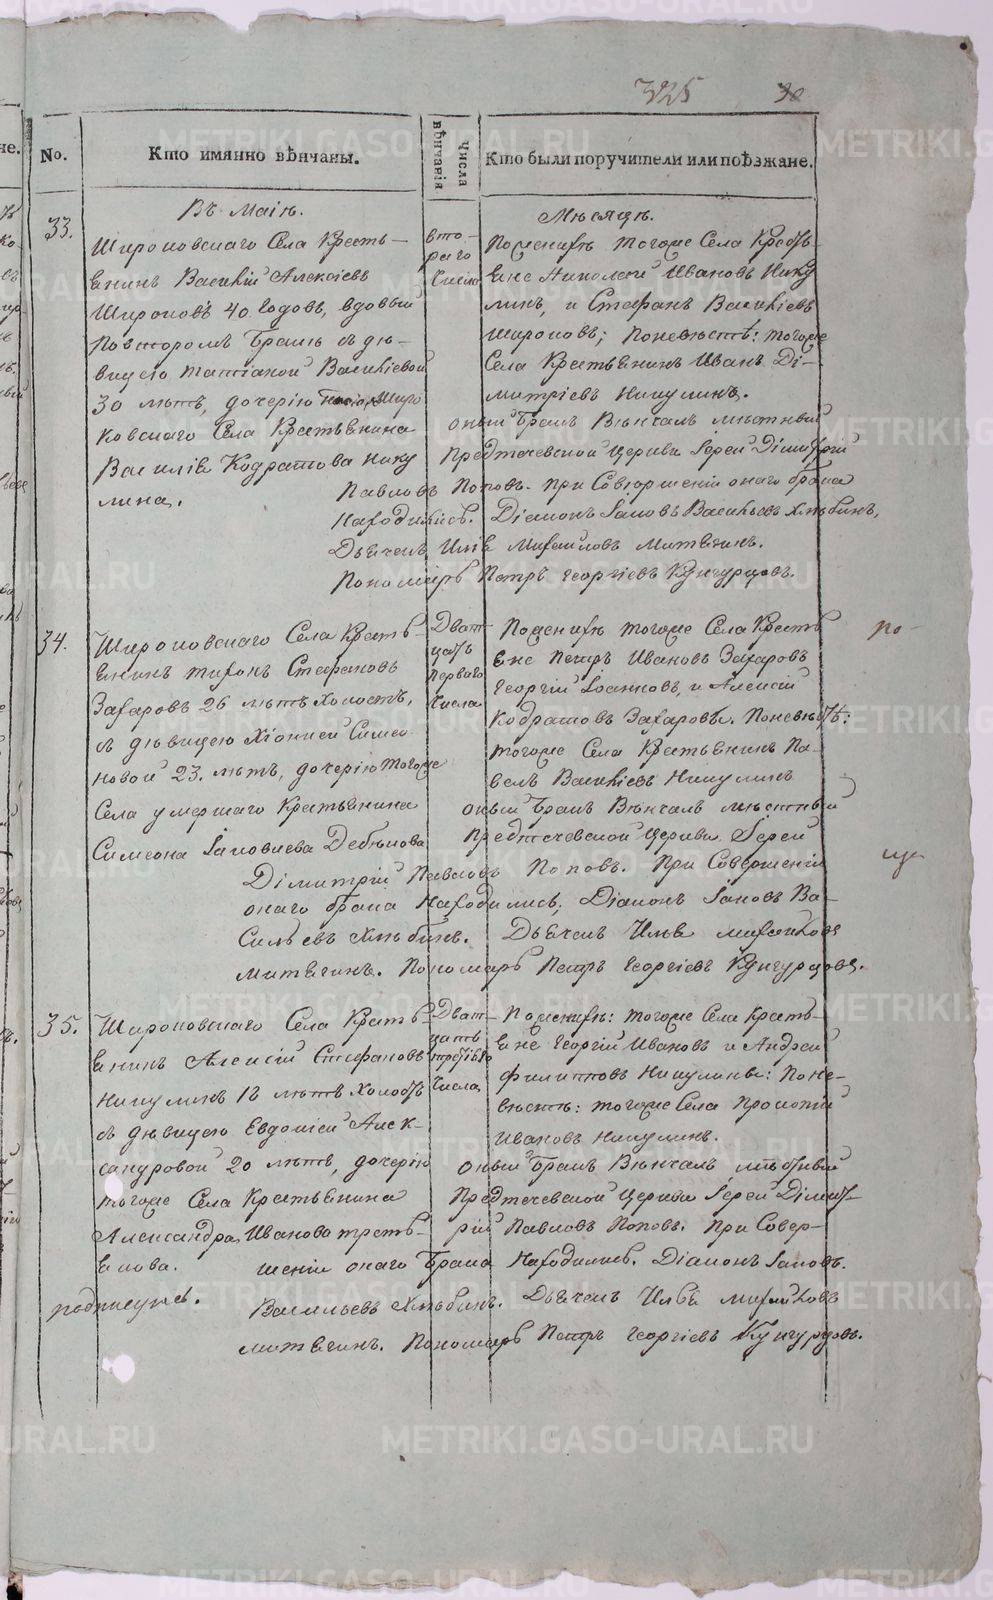 325 30
No. Кто имянно вѣнчаны. Числа вѣнчанія Кто были поручители или поѣзжане.
Въ Маіѣ. Мѣсяцѣ.
33.
Широковскаго Села Кресть-
янинъ Василій Алексіевъ
Широковъ 40 годовъ, вдовый
повторомъ Бракѣ съ дѣ-
вицею Татіаной Василіевой
30 лѣтъ, дочерію Широ
ковскаго Села Крестьянина
Василія Кодратова Нику
лина.
вто-
раго
Числа
Поженихѣ тогоже Села Кресть
яне Николай Ивановъ Нику
линъ, и Стефанъ Василіевъ
Широковъ; Поневѣстѣ: тогоже
Села Крестьянинъ Иванъ Ди-
митріевъ Никулинъ.
оный Бракъ Вѣнчалъ мѣстный
Предтечевской Церкви Іерей Дімитрій
Павловъ Поповъ. При Совершеніи онаго брака
Находились. Діаконъ Іаковъ Васильевъ Хлѣбинъ,
Дьячекъ Илія Михаиловъ Митягинъ.
Пономарь Петръ Георгіевъ Кунгурцовъ.
34.
Широковскаго Села Кресть-
янинъ Тихонъ Стефановъ
Захаровъ 26 лѣтъ Холостъ,
съ дѣвицею Хіоніей Симео
новой 23. лѣтъ, дочерію тогоже
Села умершаго Крестьянина
Симеона Іаковлева
Дват-
цать
перваго
Числа
Поженихѣ тогоже Села Кресть
яне Петръ Ивановъ Захаровъ
Георгій Іоанновъ, и Алексій
Кодратовъ Захаровы. Поневѣстѣ:
тогоже Села Крестьянинъ Па-
велъ Василіевъ Никулинъ
оный Бракъ Вѣнчалъ мѣстный
Предтечевской Церкви Іерей
Дімитрій Павловъ Поповъ. При Совершеніи
онаго брака Находились, Діаконъ Іаковъ Ва-
сильевъ Хлѣбинъ. Дьячекъ Илья Михаиловъ
Митягинъ. Пономарь Петръ Георгіевъ Кунгурцовъ.
по-
ще
35.
Широковскаго Села Кресть-
янинъ Алексій Стефановъ
Никулинъ 18 лѣтъ Холостъ
съ дѣвицею Евдокіей Алек-
сандровой 20 лѣтъ, дочерію
тогоже Села Крестьянина
Александра Иванова Треть-
якова.
Дват-
цать
третьяго
Числа
Поженихѣ: тогоже Села Кресть-
яне Георгій Ивановъ и Андрей
Филипповъ Никулины: Поне-
вѣстѣ: тогоже Села Прокопій
Ивановъ Никулинъ.
оный Бракъ Вѣнчалъ мѣстный
Предтечевской Церкви Іерей Димит-
рій Павловъ Поповъ. При Совер-
шеніи онаго Брака Находились. Діаконъ Іаковъ.
Васильевъ Хлѣбинъ. Дьячекъ Илья Михаиловъ
Митягинъ. Пономарь Петръ Георгіевъ Кунгурцовъ.
METRIKI.GASO-URAL.RU